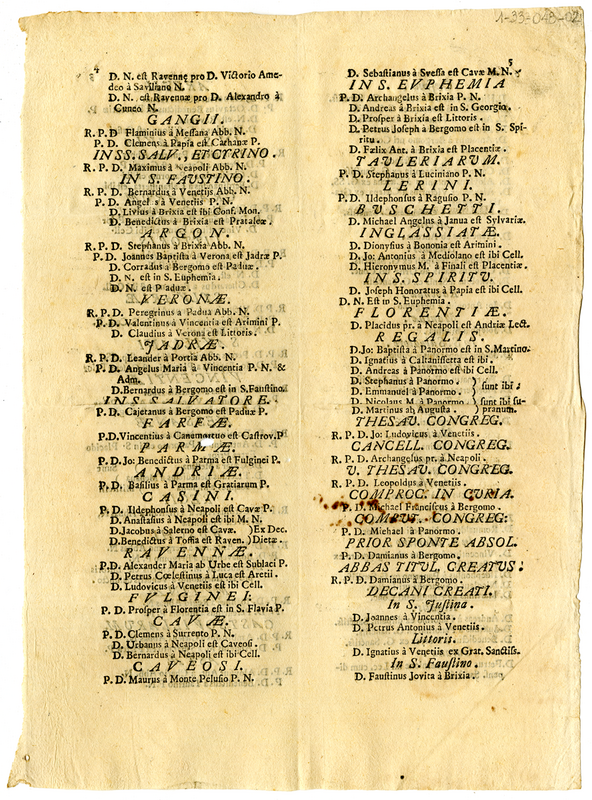 1-33-048-02
4
D. N. est Ravennę pro D. Victorio Ame-
deo à Savilliano N.
D. N. est Ravennæ pro D. Alexandro à
Cuneo N.
GANGII.
R. P. D Flaminius à Messana Abb. N.
P. D. Clemens à Papia est Carhanæ P.
IN SS. SALV., ET CTRINO.
R. P. D. Maximus à Neapoli Abb. N.
IN S. FAUSTINO.
R. P. D. Bernardus à Venetiis Abb. N.
P. D. Angel s à Venetiis P. N.
D. Livius à Brixia est ibi Conf. Mon.
D. Benedictus à Brixia est Prataleæ.
ARGON.
R. P. D. Stephanus à Brixia Abb. N.
P. D. Joannes Baptista à Verona est Jadræ P.
D. Corradus à Bergomo est Paduæ.
D. N. est in S. Euphemia.
D. N. est Paduæ.
VERONÆ.
R. P. D. Peregrinus a Padua Abb. N.
P. D. Valentinus à Vincentia est Arimini P.
D. Claudius à Verona est Littoris.
JADRÆ.
R. P. D. Leander à Portia Abb. N.
P. D. Angelus Maria à Vincentia P. N. &
Adm.
D. Bernardus à Bergomo est in S. Faustino.
IN S. SALVATORE.
P. D. Cajetanus à Bergomo est Paduæ P.
FARFÆ.
P.D. Vincentius à Canemortuo est Castrov. P
PARMÆ.
P.D. Jo: Benedictus à Parma est Fulginei P.
ANDRIÆ.
P. D. Basilius à Parma est Gratiarum P.
CASINI.
P. D. Ildephonsus à Neapoli est Cavæ P.
D. Anastasius à Neapoli est ibi M. N.
D. Jacobus à Salerno est Cavæ. )Ex Dec.
D. Benedictus à Toffia est Raven. )Dietæ.
RAVENNÆ.
P.D. Alexander Maria ab Urbe est Sublaci P.
D. Petrus Cœlestinus à Luca est Aretii.
D. Ludovicus à Venetiis est ibi Cell.
FVLGINEI.
P. D. Prosper à Florentia est in S. Flavia P.
CAVÆ.
P. D. Clemens à Surrento P. N.
D. Urbanus à Neapoli est Caveosi.
D. Bernardus à Neapoli est ibi Cell.
CAVEOSI.
P. D. Maurus à Monte Pelusio P. N.
5
D. Sebastianus à Svessa est Cavæ M. N.
IN S. EVPHEMIA
P. D. Archangelus à Brixia P. N.
D. Andreas à Brixia est in S. Georgio.
D. Prosper à Brixia est Littoris.
D. Petrus Joseph à Bergomo est in S. Spi-
ritu.
D. Fælix Ant. à Brixia est Placentiæ.
TAULERIARVM.
P. D. Stephanus à Luciniano P. N.
LERINI.
P. D. Ildephonsus à Ragusio P. N.
BUSCHETTI.
D. Michael Angelus à Janua est Sylvariæ.
INGLASSIATÆ.
D. Dionysius à Bononia est Arimini.
D. Jo: Antonius à Mediolano est ibi Cell.
D. Hieronymus M. à Finali est Placentiæ.
IN S. SPIRITV.
D. Joseph Honoratus à Papia est ibi Cell.
D. N. Est in S. Euphemia.
FLORENTIÆ.
D. Placidus pr. à Neapoli est Andriæ Lect.
REGALIS.
D. Jo: Baptista à Panormo est in S. Martino.
D. Ignatius à Caltanisserta est ibi.
D. Andreas à Panormo est ibi Cell.
D. Stephanus à Panormo.
D. Emmanuel à Panormo. } sunt ibi:
D. Nicolaus M. à Panormo. } sunt ibi su-
D. Martinus ab Augusta. } pranum.
THESAV. CONGREG.
R. P. D. Jo: Ludovicus à Venetiis.
CANCELL. CONGREG.
R. P. D. Archangelus pr. à Neapoli.
V. THESAV. CONGREG.
R. P. D. Leopoldus à Venetiis.
COMPROC. IN CURIA.
P. D. Michael Franciscus à Bergomo.
COMPUT. CONGREG:
P. D. Michael à Panormo.
PRIOR SPONTE ABSOL.
P. D. Damianus à Bergomo.
ABBAS TITUL. CREATUS:
R. P. D. Damianus à Bergomo.
DECANI CREATI.
In S. Justina.
D. Joannes à Vincentia.
D. Petrus Antonius à Venetiis.
Littoris.
D. Ignatius à Venetiis ex Grat. Sanctiss.
In S. Faustino.
D. Faustinus Jovita à Brixia.